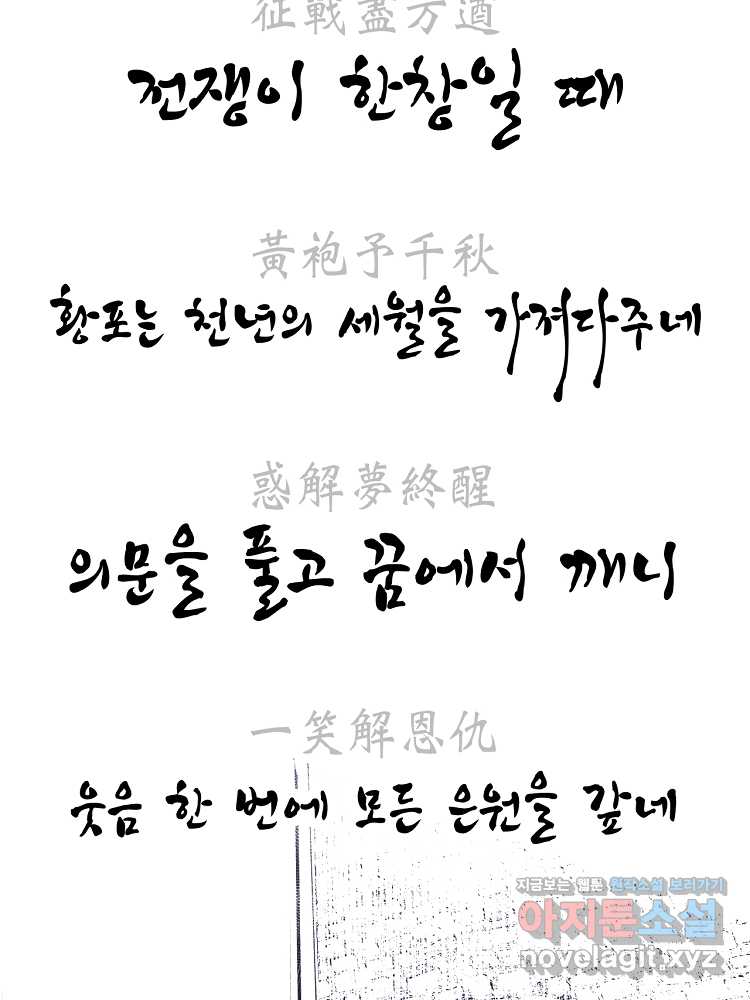 征戰盡方遒
전쟁이 한창일 때
黃袍予千秋
황포는 천년의 세월을 가져다주네
惑解夢終醒
의문을 풀고 꿈에서 깨니
一笑解恩仇
웃음 한 번에 모든 은원을 갚네
지금보는 웹툰 원작소설 보러가기
아지툰소설
novelagit.xyz